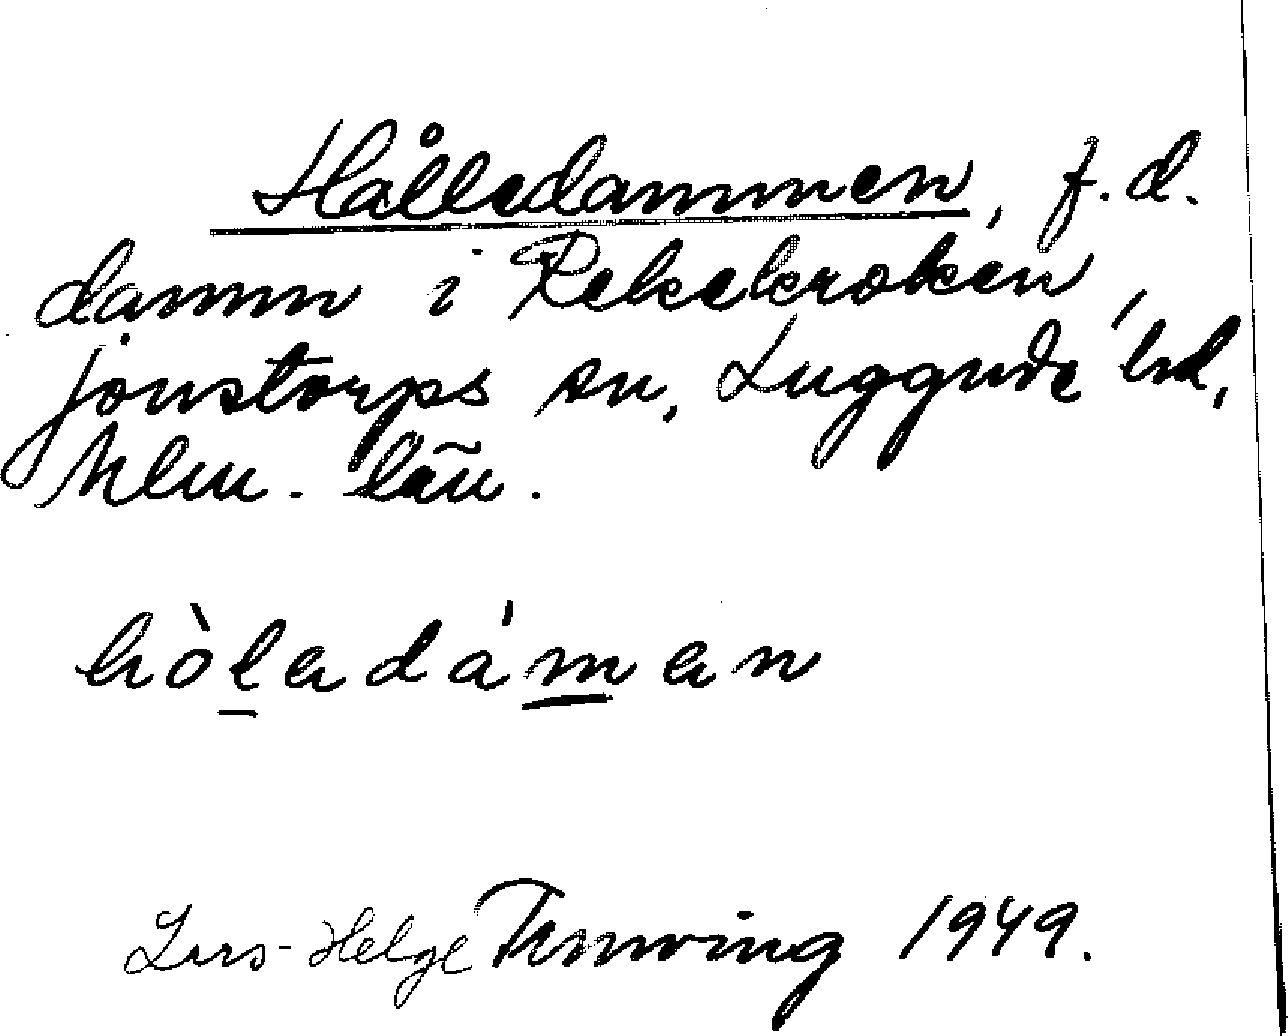 Hålledammen, f.d.
damm i Rekekroken,
Jonstorps sn, Luggude hd,
Mlm. län.
hòladáman
Lars-Helge 1949.